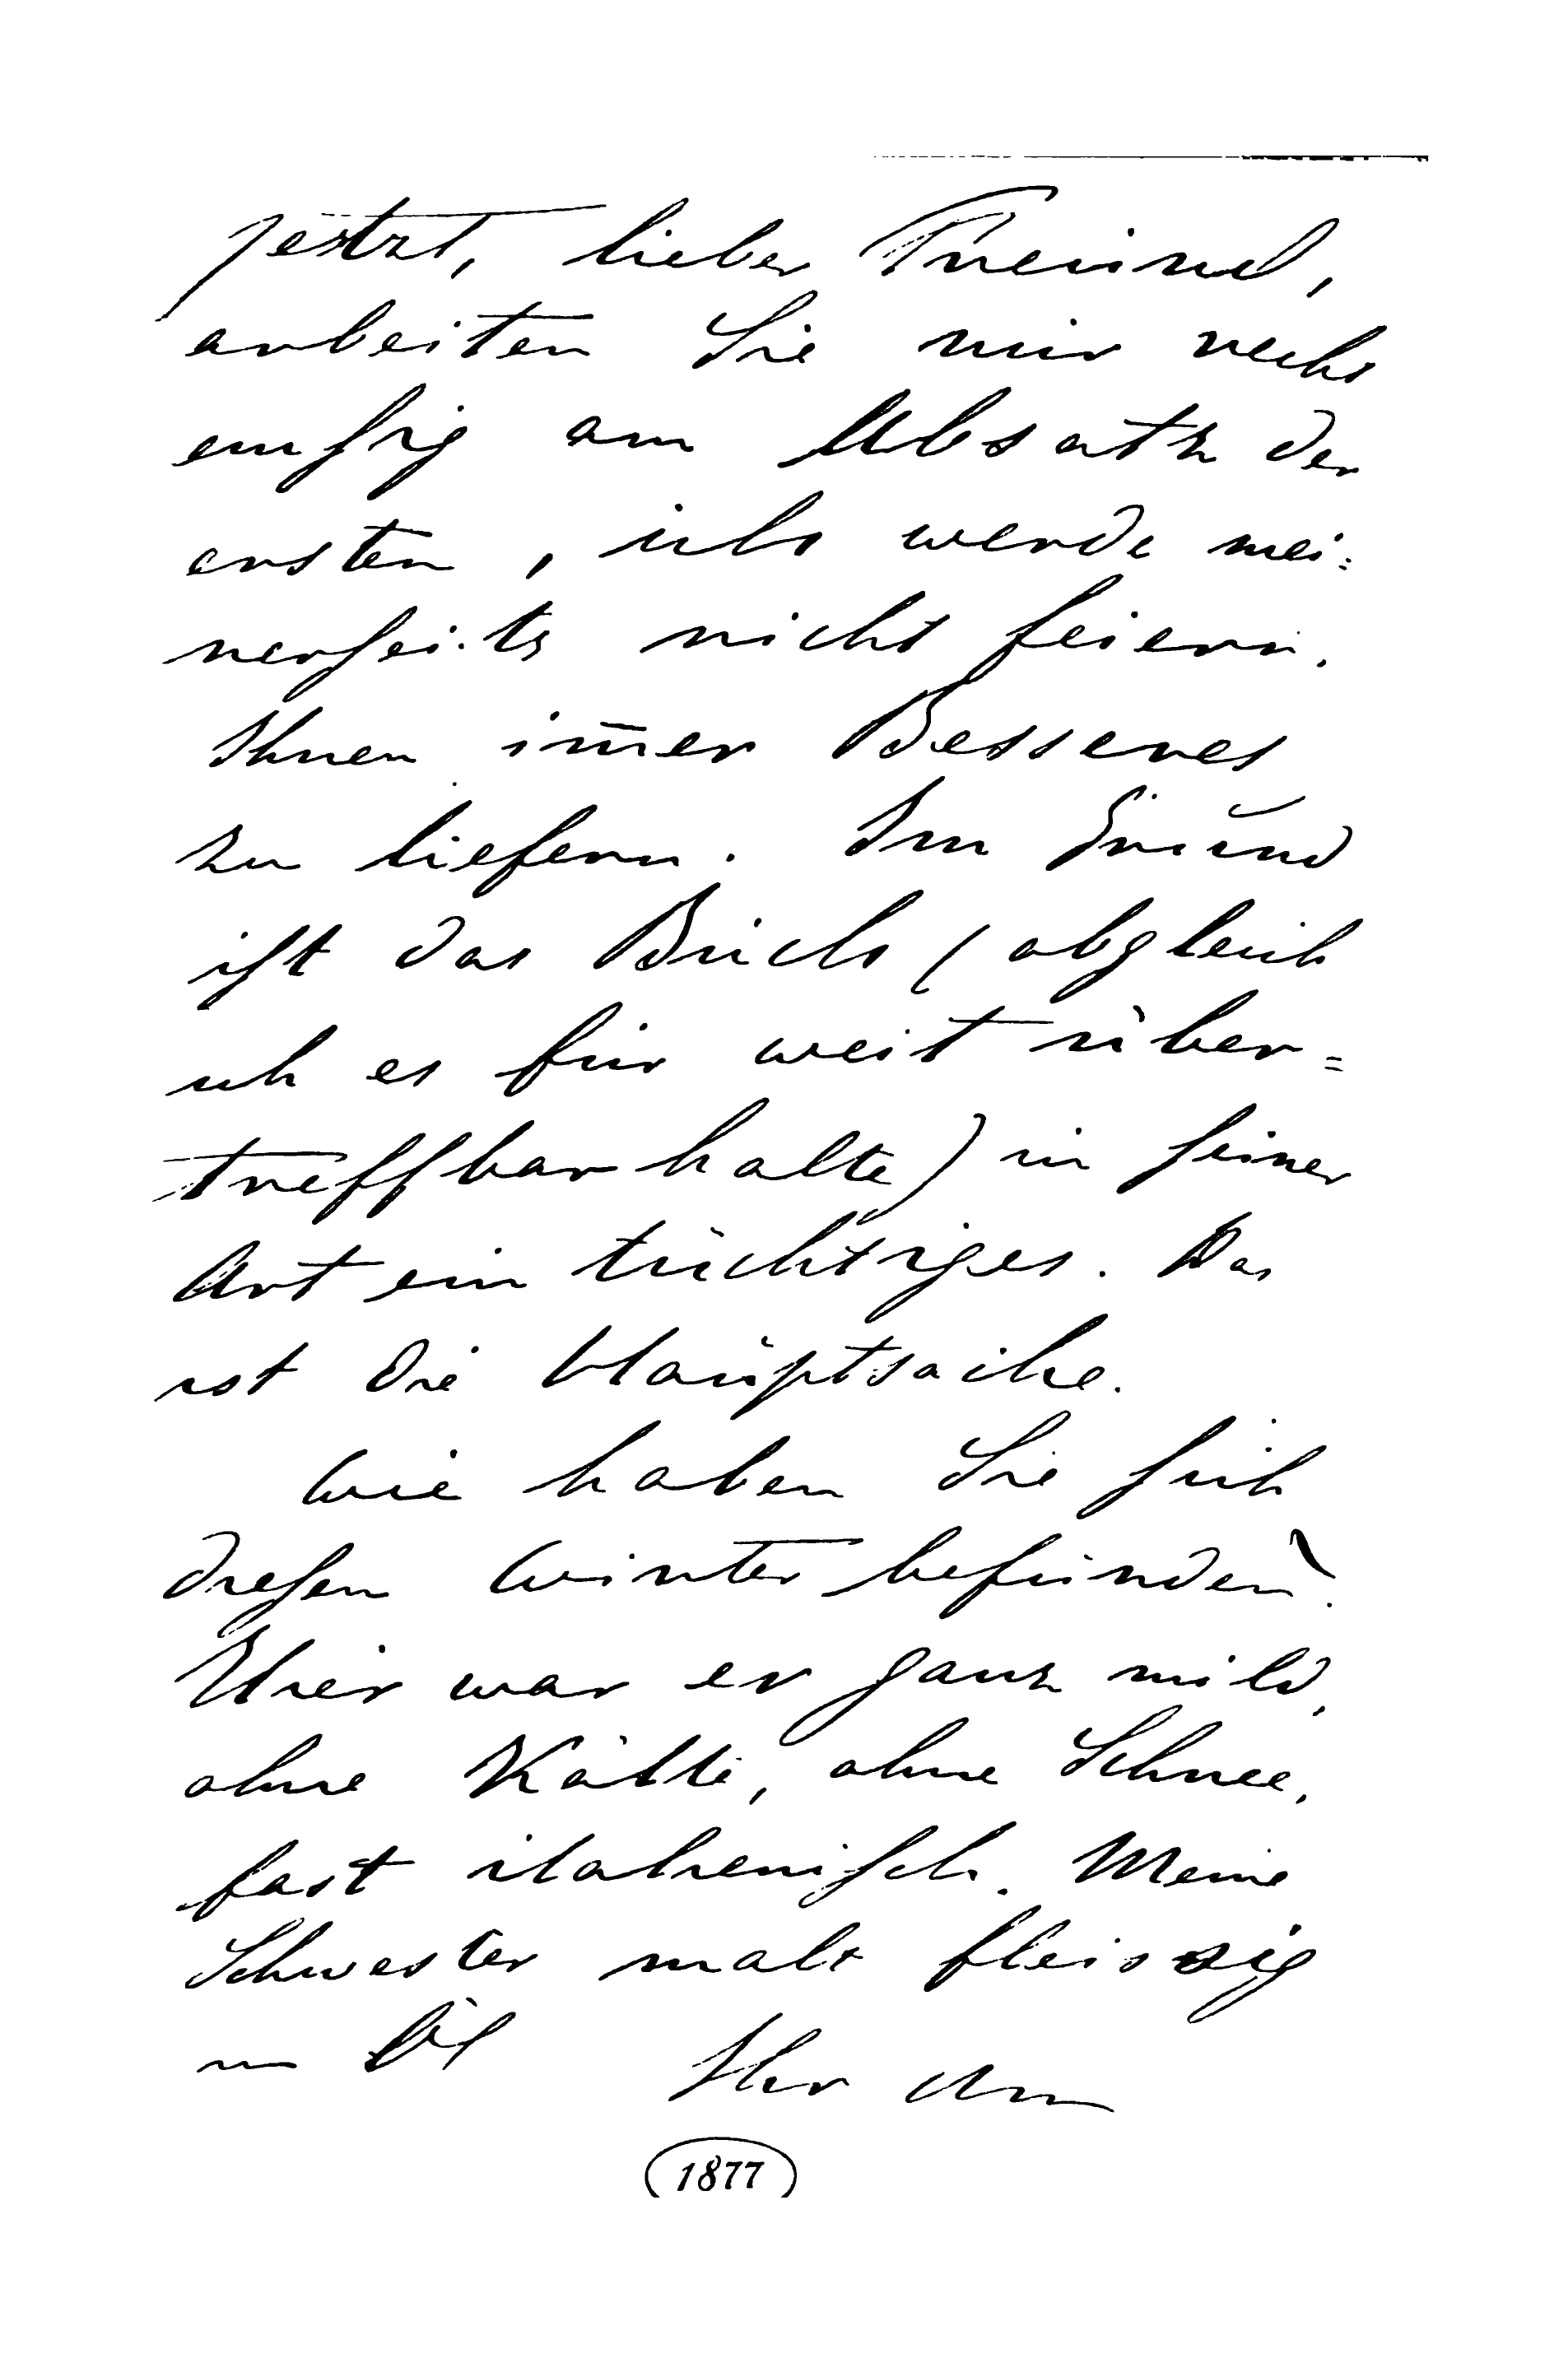 jetzt, lieber Freund,
arbeiten Sie mir recht
emſig am Absatz der
ersten, ich werde mei=
nerſeits nicht feiern.
Ihnen im̄er Besseres
zu liefern. Im Grund
iſt das Buch (obgleich
ich es für weit über=
treffbar halte) in ſeiner
Art ein tüchtiges. Das
ist die Hauptsache.
Wie haben Sie ſich
dieſen Winter befunden?
Hier war er ganz mild,
ohne Kälte, ohne Schnee,
fast italieniſch. Meine
Schwester malt fleissig
in Öl Ihr
(1877)